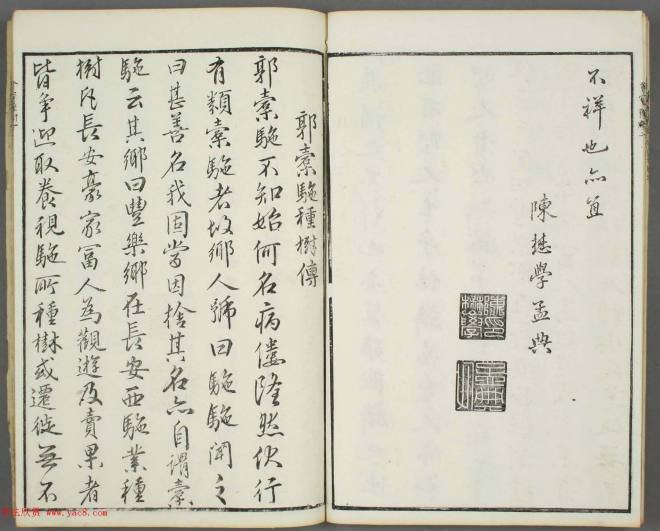 不祥也亦宜
陳懋學孟典
郭橐駝種樹傳
郭橐駝不知始何名病僂隆然伏行
有類橐駝者故鄉人號曰駝駝聞之
曰甚善名我固當因捨其名亦自謂橐
駝云其鄉曰豐樂鄉在長安西駝業種
樹凡長安豪家富人為觀遊及賣果者
皆爭迎取養視駝所種樹或遷徙無不
www.yac8.com